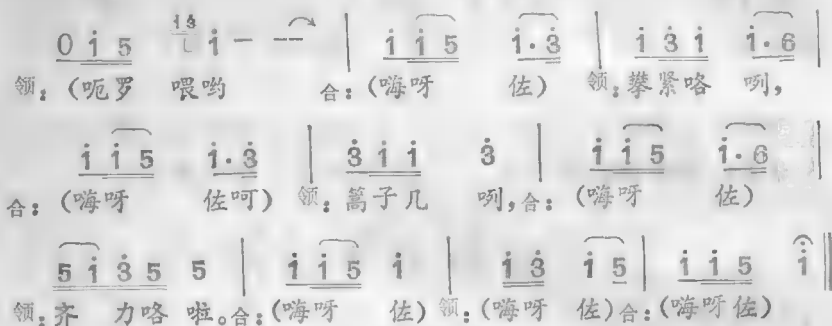 0 i̇ 5 i̇ 3̇ i̇ – – – | i̇ i̇ 5 i̇ · 3̇ | i̇ 3̇ i̇ i̇ · 6 |
领：（呃罗 喂哟 合：（嗨呀 佐） 领：攀紧咯 咧，
i̇ i̇ 5 i̇ · 3̇ | 3̇ i̇ i̇ 3̇ | i̇ i̇ 5 i̇ · 6 |
合：（嗨呀 佐呵） 领：篙子几 咧，合：（嗨呀 佐）
5 i̇ 3̇ 5 5 | i̇ i̇ 5 i̇ | i̇ 3̇ i̇ 5 | i̇ i̇ 5 i̇ ‖
领：齐 力咯 啦。合：（嗨呀 佐）领：（嗨呀 佐）合：（嗨呀佐）